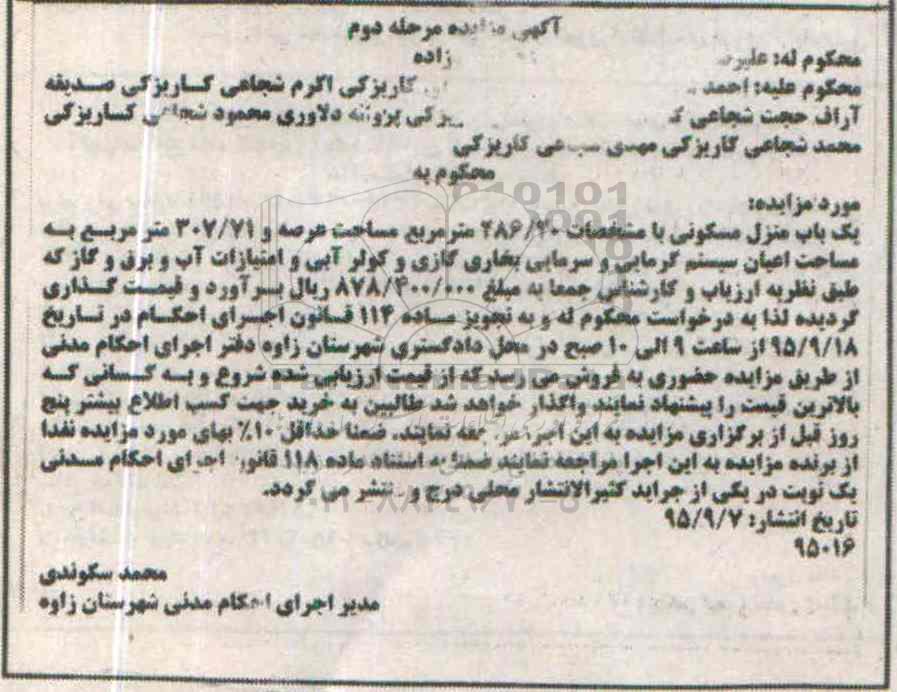 آگهی مزایده مرحله دوم
محکوم له: علیرضا زاده
محکوم علیه: احمد کاریزکی اکرم شجاعی کاریزکی صدیقه
آراف حجت شجاعی پروانه دلاوری محمود شجاعی کاریزکی
محمد شجاعی کاریزکی مهدی شجاعی کاریزکی
محکوم به
مورد مزایده:
یک باب منزل مسکونی با مشخصات ۴۸۶/۲۰ مترمربع مساحت عرصه و ۳۰۷/۷۱ متر مربع به
مساحت اعیان سیستم گرمایی و سرمایی بخاری گازی و کولر آبی و امتیازات آب و برق و گاز که
طبق نظریه ارزیاب و کارشناس جمعا به مبلغ ۸۷۸/۴۰۰/۰۰۰ ریال برآورد و قیمت گذاری
گردیده لذا به درخواست محکوم له و به تجویز ماده ۱۱۴ قانون اجرای احکام در تاریخ
۹۵/۹/۱۸ از ساعت ۹ الی ۱۰ صبح در محل دادگستری شهرستان زاوه دفتر اجرای احکام مدنی
از طریق مزایده حضوری به فروش می رسد که از قیمت ارزیابی شده شروع و به کسانی که
بالاترین قیمت را پیشنهاد نمایند واگذار خواهد شد طالبین به خرید جهت کسب اطلاع بیشتر پنج
روز قبل از برگزاری مزایده به این اجرا مراجعه نمایند. ضمنا حداقل ۱۰٪ بهای مورد مزایده نقدا
از برنده مزایده به این اجرا مراجعه نمایند ضمنا به استناد ماده ۱۱۸ قانون اجرای احکام مدنی
یک نوبت در یکی از جراید کثیرالانتشار محلی درج و منتشر می گردد.
تاریخ انتشار: ۹۵/۹/۷
۹۵۰۱۶
محمد سکوندی
مدیر اجرای احکام مدنی شهرستان زاوه